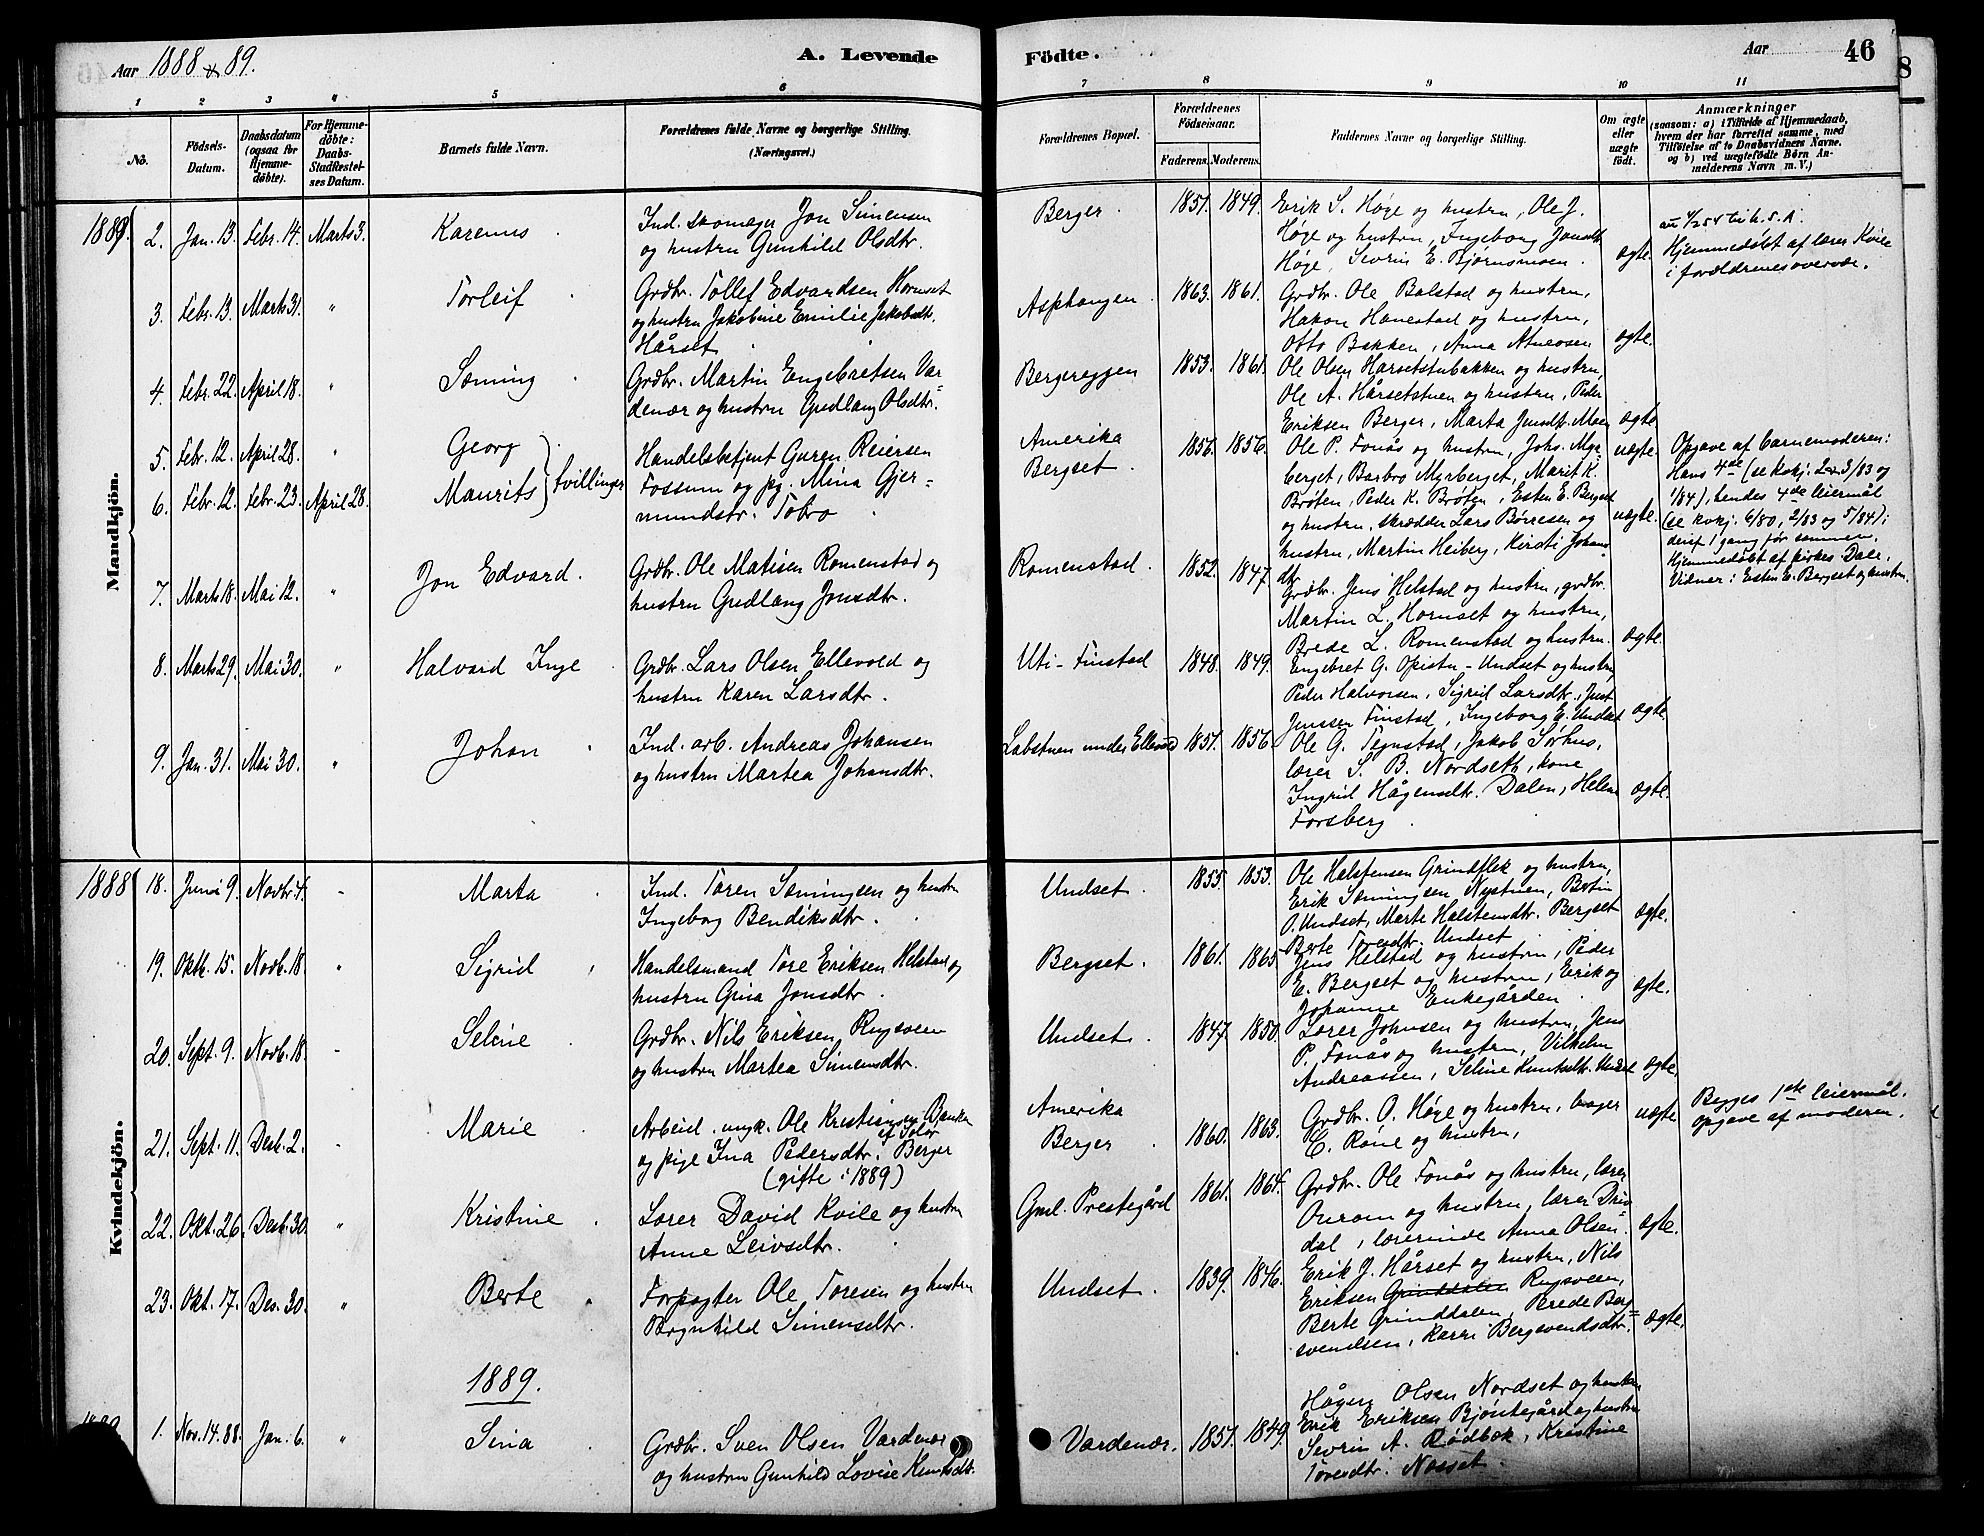 Aar 1888 & 89.
A. Levende
Födte.
Aar
46
1 2 3 4 5 6 7 8 9 10 11
No.
Födsels-
Datum.
Daabsdatum
(ogsaa for
Hjemme-
döbte).
For Hjemme-
döbte:
Daabs-
Stadfæstel-
ses Datum.
Barnets fulde Navn.
Forældrenes fulde Navne og borgerlige Stilling.
(Næringsvei.)
Forældrenes Bopæl.
Forældrenes
Födselsaar.
Faderens. Moderens.
Faddernes Navne og borgerlige Stilling.
Om ægte
eller
uægte
födt.
Anmærkninger
(saasom: a) i Tilfælde af Hjemmedaab,
hvem der har forrettet samme, med
Tilföielse af to Daabsvidners Navne.
og b) ved uægtefödte Børn An-
melderens Navn m. V.)
Mandkjön.
1889. 2. Jan. 13. Febr. 14. Marts 3. Karenus
Ind. skomager Jon Simensen
og hustru Gunhild Olsdtr.
Berger. 1851. 1849.
Erik S. Høge og hustru, Ole J.
Høge og hustru, Ingeborg Jonsdtr.
Høge, Sevrin E. Bjørnsmoen.
ægte.
Hjemmedøbt af lærer Kvile
i forældrenes overvær.
3. Febr. 13. Marts 31. " Torleif
Grdbr. Tollef Edvardsen Hornset
og hustru Jakobine Emilie Jakobsdtr.
Hårset
Asphaugen. 1863. 1861.
Grdbr. Ole Balstad og hustru,
Hakon Hanestad og hustru,
Otto Bakken, Anna
ægte.
4. Febr. 22. April 18. " Søming
Grdbr. Martin Engebretsen Var-
denær og hustru Gudlaug Olsdtr.
Bergereggen 1853. 1861.
Ole Olsen Harsetstubakken og hustru,
Ole A. Hårsetstuen og hustru, Peder
Eriksen Berger, Marta Jensdtr. Moen
ægte
5. Febr. 12. April 28. " Georg
6. Febr. 12. Febr. 23. April 28. Maurits } tvillinger
Handelsbetjent Guren Reiersen
Fossum og pg. Mina Gjer-
mundstr. Tobro
Amerika
Bergset. 1856. 1856.
Ole P. Fonås og hustru, Johs. Myr-
berget, Barbro Myrberget, Marit K.
Brøten, Peder K. Brøten, Esten E. Bergset
og hustru, skrædder Lars Børresen og
hustru, Martin Heiberg, Kirsti Johans
dtr.
uægte.
uægte.
Opgave af barnemoderen:
Hans 4de (se kvkj. 2 3/83 og
1/84), hendes 4de leiermål
(se kvkj. 6/80, 2/83 og 5/84);
deraf 1 gang før sammen.
Hjemmedøbt af kirkes. Dale.
Vidner: Esten E. Bergset og hustru.
7. Marts 18. Mai 12. " Jon Edvard.
Grdbr. Ole Matisen Romenstad og
hustru Gudlaug Jonsdtr.
Romenstad. 1852. 1847.
Grdbr. Jens Helstad og hustru, grdbr.
Martin L. Hornset og hustru,
Brede L. Romenstad og hustru.
ægte.
8. Marts 29. Mai 30. " Halvard Inge
Grdbr. Lars Olsen Ellevold og
hustru Karen Larsdtr.
Uti-Finstad 1848. 1849.
Engebret G. Opistu-Undset og hustru
Peder Halvorsen, Sigrid Larsdtr., Just
Jenssen Finstad, Ingeborg E. Undset
ægte.
9. Jan. 31. Mai 30. " Johan
Ind. arb. Andreas Johansen
og hustru Martea Johansdtr.
Labstuen under Ellevold 1851. 1856
Ole G. Tegnstad, Jakob Sørhus,
lærer S. B. Nordseth, kone
Ingrid Hågensdtr. Dalen, Helene
Forsberg.
ægte.
Kvindekjön.
1888 18. Juni 9. Novbr. 4. - Marta
Ind. Toren Sømingsen og hustru
Ingeborg Bendiksdtr.
Undset. 1855. 1853.
Ole Halstensen Grindflek og hustru,
Erik Sømingsen Nystuen, Bertin
O. Undset, Marte Halstensdtr. Bergset
Berte Toresdtr. Undset
ægte.
19. Oktb. 15. Novb. 18. " Sigrid
Handelsmand Tore Eriksen Helstad og
hustru Gina Jonsdtr.
Bergset. 1861. 1865
Jens Helstad og hustru, Peder
E. Bergset og hustru, Erik og
Johanne Enkegården
ægte.
20. Sept. 9. Novb. 18. - Seline
Grdbr. Nils Eriksen Rugsveen
og hustru Martea Simensdtr.
Undset. 1847. 1850.
Lærer Johnsen og hustru, Jens
P. Fonås og hustru, Vilhelm
Andreassen, Seline Knutsdtr. Undset
ægte.
21. Sept. 11. Desb. 2. - Marie
Arbeid. ungk. Ole Kristiansen Banken
af Solør
og pige Ina Pedersdtr. Berger
(gifte i 1889)
Amerika
Berger 1860. 1863.
Grdbr. O. Høge og hustru, bager
C. Røne og hustru,
uægte
Begges 1ste leiermål.
opgave af moderen.
22. Okt. 26. Desb. 30. " Kristine
Lærer David Kvile og hustru
Anne Leivsdtr.
Gml. Prestegård 1861. 1864.
Grdbr. Ole Fonås og hustru, lærer
Aurom og hustru, lærer Driv
dal, lærerinde Anna Olsen.
ægte.
23. Okt. 17. Des. 30. " Berte
Forpagter Ole Toresen og hustru
Ragnhild Simensdtr.
Undset. 1839. 1846.
Erik J. Hårset og hustru, Nils
Eriksen Grinddalen Rugsveen,
Berte Grinddalen, Brede Berg=
svendsen, Karen Bergsvendsdtr.
ægte.
1889.
1. Nov. 14. 88. Jan. 6. " Sina
Grdbr. Sven Olsen Vardenær
og hustru Gunhild Lovise Knutsdtr.
Vardenær. 1851. 1849.
Hågen Olsen Nordset og hustru
Erik Eriksen Bjøntegård og hustru
Sevrin A. Rødbæk, Kristine
Toresdtr. Nosset.